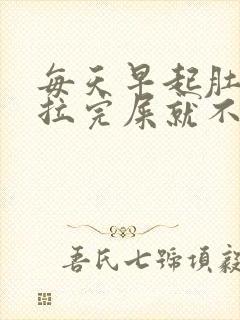 每天早起肚
拉完屎就不
吾氏七號項毅